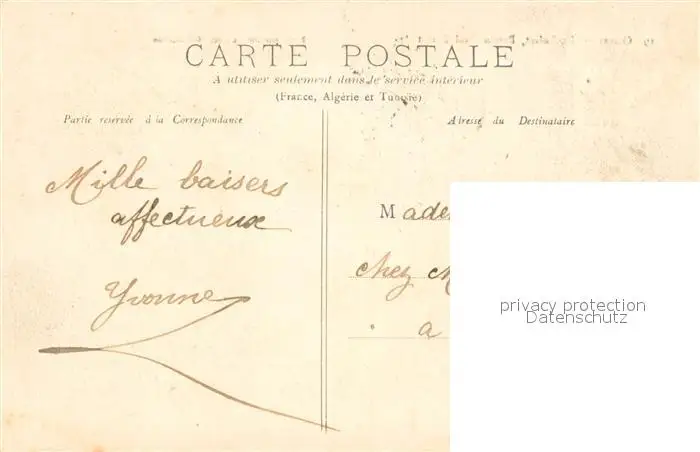 CARTE POSTALE
A utiliser seulement dans le service intérieur
(France, Algérie et Tunisie)
Partie reservée à la Correspondance
Adresse du Destinataire
Mille baisers
affectueux
Yvonne
Made
chez M
a
privacy protection
Datenschutz